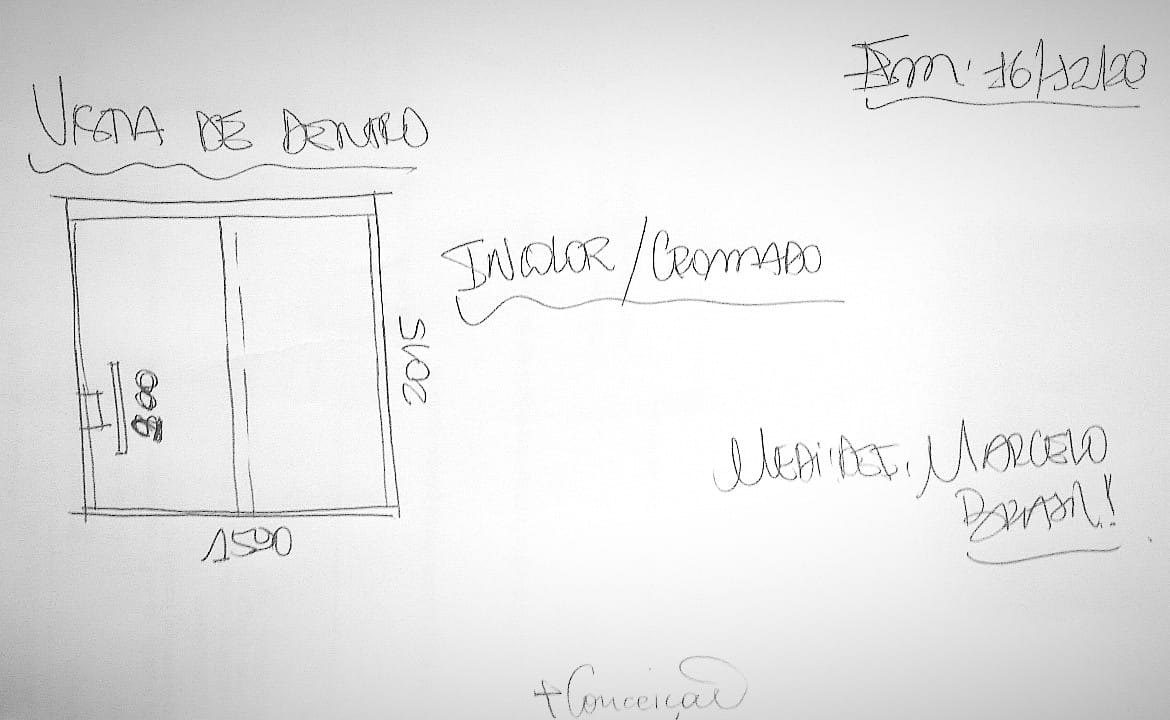 Em: 16/12/20
VISTA DE DENTRO
INCOLOR/CROMADO
2015
800
MEDIDAS: MARCELO
BRASIL!
1500
+Conceição